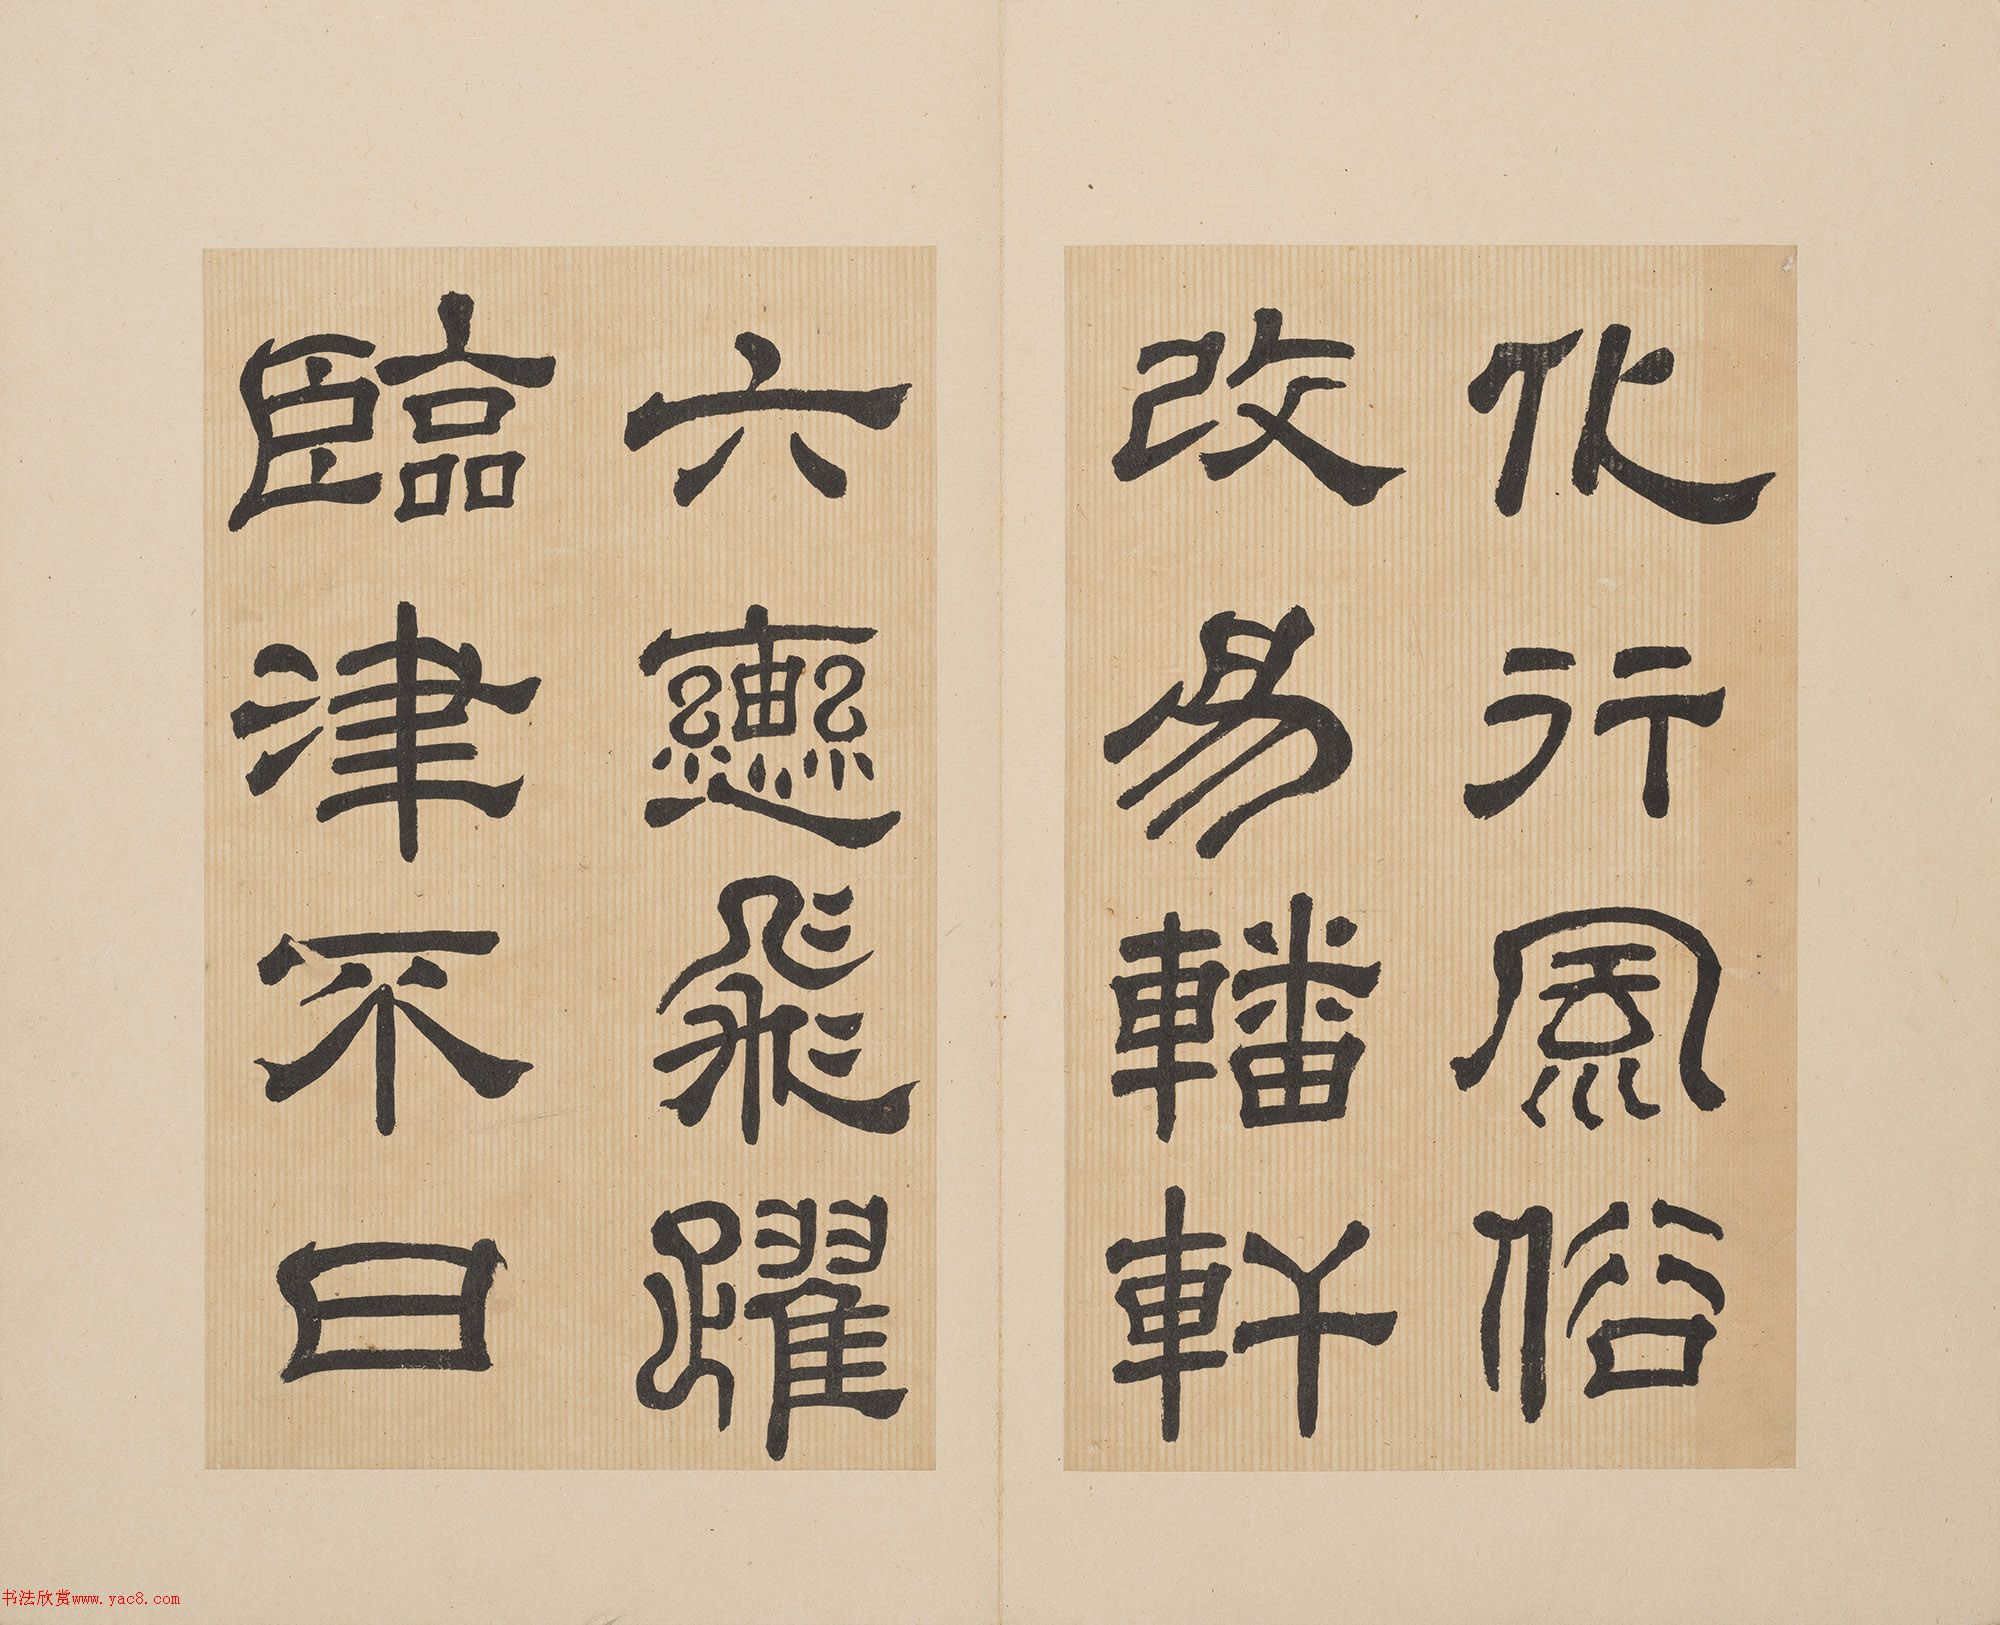 化行風俗
改易轓軒
六轡飛躍
臨津不日
书法欣赏www.yac8.com